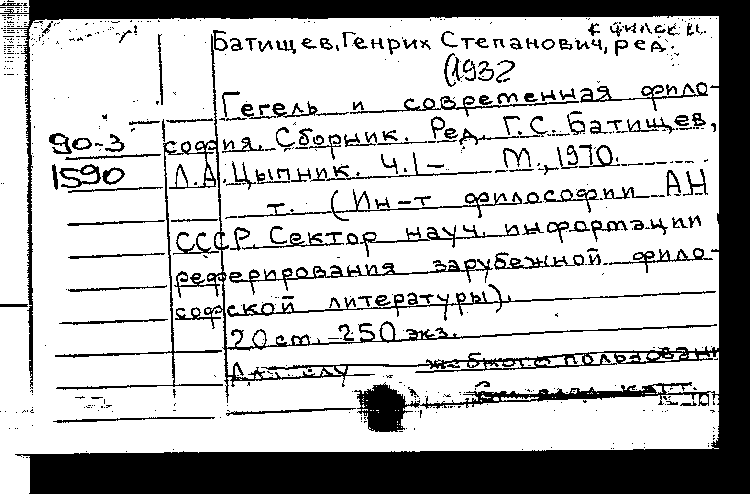 к филск и.
Батищев, Генрих Степанович, ред.
(1932
Гегель и современная фило-
90-3 софия. Сборник. Ред. Г.С. Батищев,
1590 Л.А. Цыпник. Ч.1— М., 1970.
т. (Ин-т философии АН
СССР. Сектор науч. информации
реферирования зарубежной фило-
софской литературы).
20 см. 250 экз.
Для слу жебного пользован